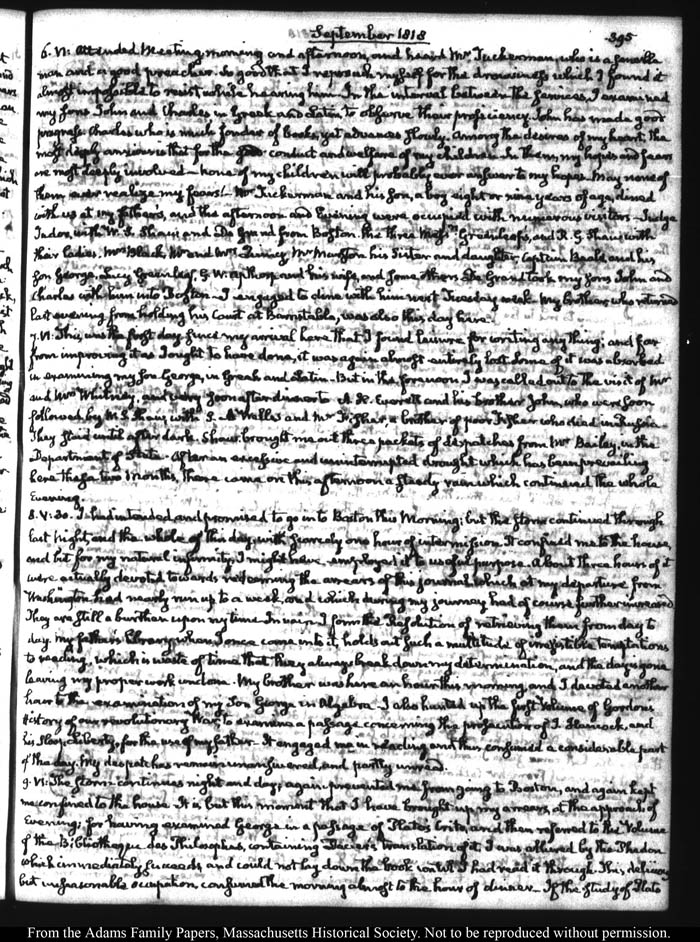 September 1818
395
6. VI: Attended Meeting, morning and afternoon, and heard Mr Tuckerman, who is a sensible
man and a good preacher. So good that I reproach myself for the drowsiness which I found it
almost impossible to resist while hearing him. In the interval between the services, I examined
my Sons John and Charles in Greek and Latin to observe their proficiency. John has made good
progress. Charles who is much fonder of Books, yet advances slowly. Among the desires of my heart, the
most deeply anxious is that for the good conduct and welfare of my children. In them, my hopes and fears
are most deeply involved— None of my children will probably ever answer to my hopes. May none of
them ever realize my fears!— Mr Tuckerman and his Son, a boy eight or nine years of age, dined
with us at my fathers, and the afternoon and Evening were occupied with numerous visitors— Judge
with W. S. Shaw and De Grand from Boston. the three Greenleafs, and R. G. Shaw with
their ladies. Mrs Black, Mr and Mrs Quincy, his Sister and daughter, Captain Beale and his
Son George, Lucy Greenleaf, and his wife, and some others. De Grand took my Sons John and
Charles with him into Boston— I engaged to dine with him next Tuesday week. My brother, who returned
last evening from holding his Court at Barnstable, was also this day here.
7. VI: This was the first day since my arrival here that I found leisure for writing any thing; and far
from improving it as I ought to have done, it was again almost entirely lost. Some of it was absorbed
in examining my Son George, in Greek and Latin— But in the forenoon I was called out to the visit of Mr
and Mrs Whitney, and very soon after dinner to A. H. Everett and his brother John, who were soon
followed by W. S. Shaw, with S. A. Wells and Mr Fisher, a brother of poor Fisher who died in Russia.
They staid until after dark. Shaw brought me out three packets of despatches from Mr Bailey, in the
Department of State. After an excessive and uninterrupted drought which has been prevailing
here these two months, there came on this afternoon a steady rain which continued the whole
Evening.
8. V:30. I had intended, and promised to go in to Boston this Morning; but the Storm continued through
last Night, and the whole of this day, with scarcely one hour of intermission. It confined me to the house,
and but for my natural infirmity, I might have employed it to useful purpose. About three hours of it
were actually devoted towards redeeming the arrears of this journal, which at my departure from
Washington had nearly run up to a week, and which during my journey had of course further increased.
They are still a burthen upon my time. In vain I form the Resolution of retrieving them from day to
day. My father's library, when I once come into it, holds out such a multitude of irresistible temptations
to reading, which is waste of time that they always break down my determination, and the day is gone
leaving my proper work undone. My brother was here an hour this morning, and I devoted another
hour to the examination of my Son George in Algebra. I also hunted up the first Volume of Gordons
History of our revolutionary War, to examine a passage concerning the prosecution of J. Hancock, and
his Sloop Liberty, for the use of my father. It engaged me in reading and thus consumed a considerable part
of the day. My despatches remain unanswered, and partly unread.
9. VI: The storm continues night and day, again prevented me from going to Boston, and again kept
me confined to the house. It is but this moment that I have brought up my arrears, at the approach of
Evening; for having examined George in a passage of Plato's Crito, and then referred to the Volume
of the Bibliotheque des Philosophes, containing Dacier's translation of it, I was allured by the Phedon
which immediately succeeds, and could not lay down the book until I had read it through. This, delicious
but unseasonable occupation, consumed the morning almost to the hour of dinner— If the study of Plato
From the Adams Family Papers, Massachusetts Historical Society. Not to be reproduced without permission.